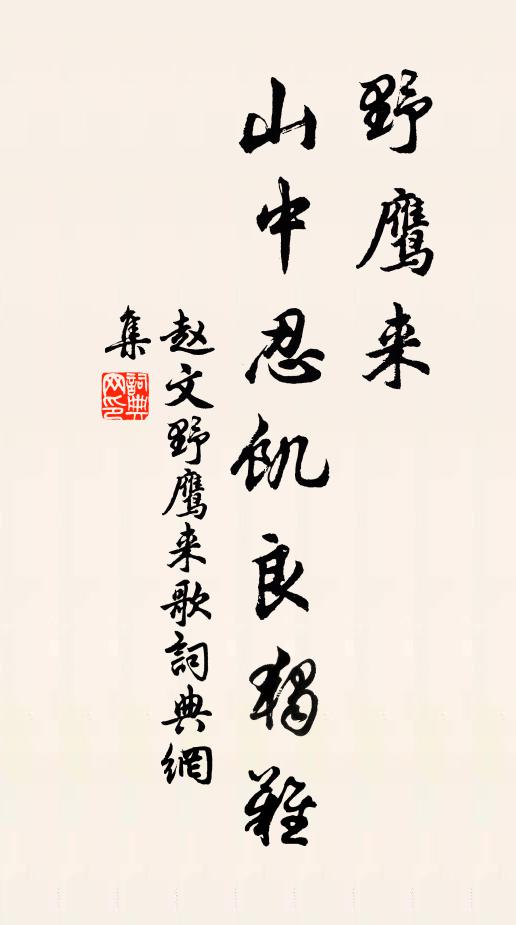 野鹰来
山中忍饥良独难
赵文野鹰来歌詞典網
集
詞典
网印